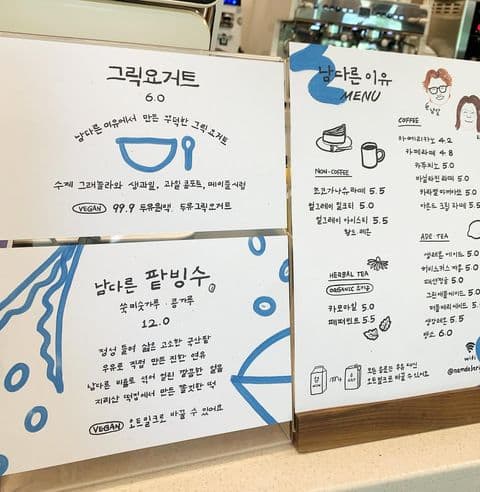 그릭요거트
6.0
남다른 이유에서 만든 꾸덕한 그릭요거트
수제 그래놀라와 생과일, 과일 콤포트, 메이플시럽
VEGAN 99.9 두유원액, 두유그릭요거트
남다른 팥빙수
쑥미숫가루 · 콩가루
12.0
정성 들여 삶은 고소한 국산팥
우유로 직접 만든 진한 연유
남다른 비율로 얼려 갈린 깔끔한 얼음
지리산 떡집에서 만든 쫄깃한 떡
VEGAN 오트밀크로 바꿀 수 있어요
남다른 이유
MENU
NON-COFFEE
초코가나슈라떼 5.5
얼그레이 밀크티 5.0
얼그레이 아이스티 5.5
HERBAL TEA
ORGANIC
카모마일 5.0
페퍼민트 5.5
COFFEE
아메리카노 4.2
카페라떼 4.8
카푸치노 5.0
바닐라빈 라떼 5.5
카라멜 마끼아또 5.5
아몬드 크림 라떼 5.5
ADE TEA
5.5
히비스커스 레몬 5.5
5.0
5.0
5.5
생강레몬 5.5
6.0
wifi
모든 음료는 우유 대신
오트밀크로 바꿀 수 있어요